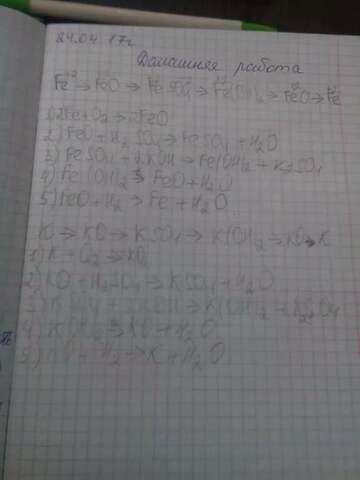 24.04.17г.
Домашняя работа
Fe → FeO → FeSO₄ → Fe(OH)₂ → FeO → Fe
1) 2Fe + O₂ → 2FeO
2) FeO + H₂SO₄ → FeSO₄ + H₂O
3) FeSO₄ + 2KOH → Fe(OH)₂ + K₂SO₄
4) Fe(OH)₂ → FeO + H₂O
5) FeO + H₂ → Fe + H₂O
K → KO → KSO₄ → K(OH)₂ → KO → K
1) K + O₂ → KO
2) KO + H₂SO₄ → KSO₄ + H₂O
3) K(OH)₂ + K₂SO₄
4) K(OH)₂ → KO + H₂O
5) + H₂ → K + H₂O